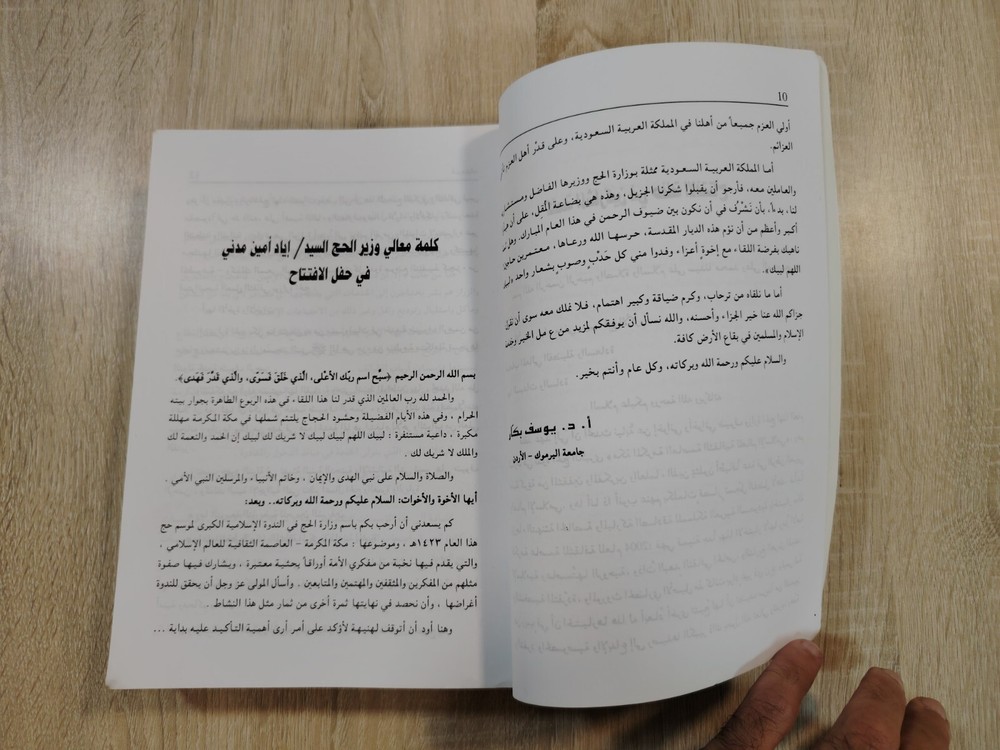 10
أولي العزم جميعاً من أهلنا في المملكة العربية السعودية، وعلى قدْر أهل العزم
العزائم.
أما المملكة العربية السعودية ممثلة بوزارة الحج ووزيرها الفاضل
والعاملين معه، فأرجو أن يقبلوا شكرنا الجزيل، وهذه هي بضاعة المُقِل، على أن
لنا، بدءاً، بأن نَشْرُف في أن نكون بين ضيوف الرحمن في هذا العام المبارك.
أكبر وأعظم من أن نؤم هذه الديار المقدسة، حرسها الله ورعاها، معتمرين
ناهيك بفرضة اللقاء مع إخوةٍ أعزاء، وفدوا مني كل حَدَبٍ وصوبٍ بشعار واحد
اللهم لبيك».
أما ما نلقاه من ترحاب، وكرم ضيافة وكبير اهتمام، فلا نملك معه سوى أن
جزاكم الله عنا خير الجزاء وأحسنه، والله نسأل أن يوفقكم لمزيد من ع مل الخير
الإسلام والمسلمين في بقاع الأرض كافة.
والسلام عليكم ورحمة الله وبركاته، وكل عام وأنتم بخير.
أ. د. يوسف
جامعة اليرموك - الأردن
كلمة معالي وزير الحج السيد/ إياد أمين مدني
في حفل الافتتاح
بسم الله الرحمن الرحيم ﴿سبِّح اسم ربِّك الأعْلى، الَّذي خَلَق فَسَوَّى، والَّذي قَدَّرَ فَهَدى﴾.
والحمد لله رب العالمين الذي قدر لنا هذا اللقاء في هذه الربوع الطاهرة بجوار بيته
الحرام ، وفي هذه الأيام الفضيلة وحشود الحجاج يلتئم شملها في مكة المكرمة مهللة
مكبرة ، داعية مستنفرة : لبيك اللهم لبيك لبيك لا شريك لك لبيك إن الحمد والنعمة لك
والملك لا شريك لك .
والصلاة والسلام على نبي الهدى والإيمان ، وخاتم الأنبياء والمرسلين النبي الأمي .
أيها الأخوة والأخوات: السلام عليكم ورحمة الله وبركاته.. وبعد:
كم يسعدني أن أرحب بكم باسم وزارة الحج في الندوة الإسلامية الكبرى لموسم حج
هذا العام ١٤٢٣هـ ، وموضوعها : مكة المكرمة - العاصمة الثقافية للعالم الإسلامي ،
والتي يقدم فيها نخبة من مفكري الأمة أوراقاً بحثية معتبرة ، ويشارك فيها صفوة
مثلهم من المفكرين والمثقفين والمهتمين والمتابعين . وأسأل المولى عز وجل أن يحقق للندوة
أغراضها ، وأن نحصد في نهايتها ثمرة أخرى من ثمار مثل هذا النشاط .
وهنا أود أن أتوقف لهنيهة لأؤكد على أمر أرى أهمية التأكيد عليه بداية ...